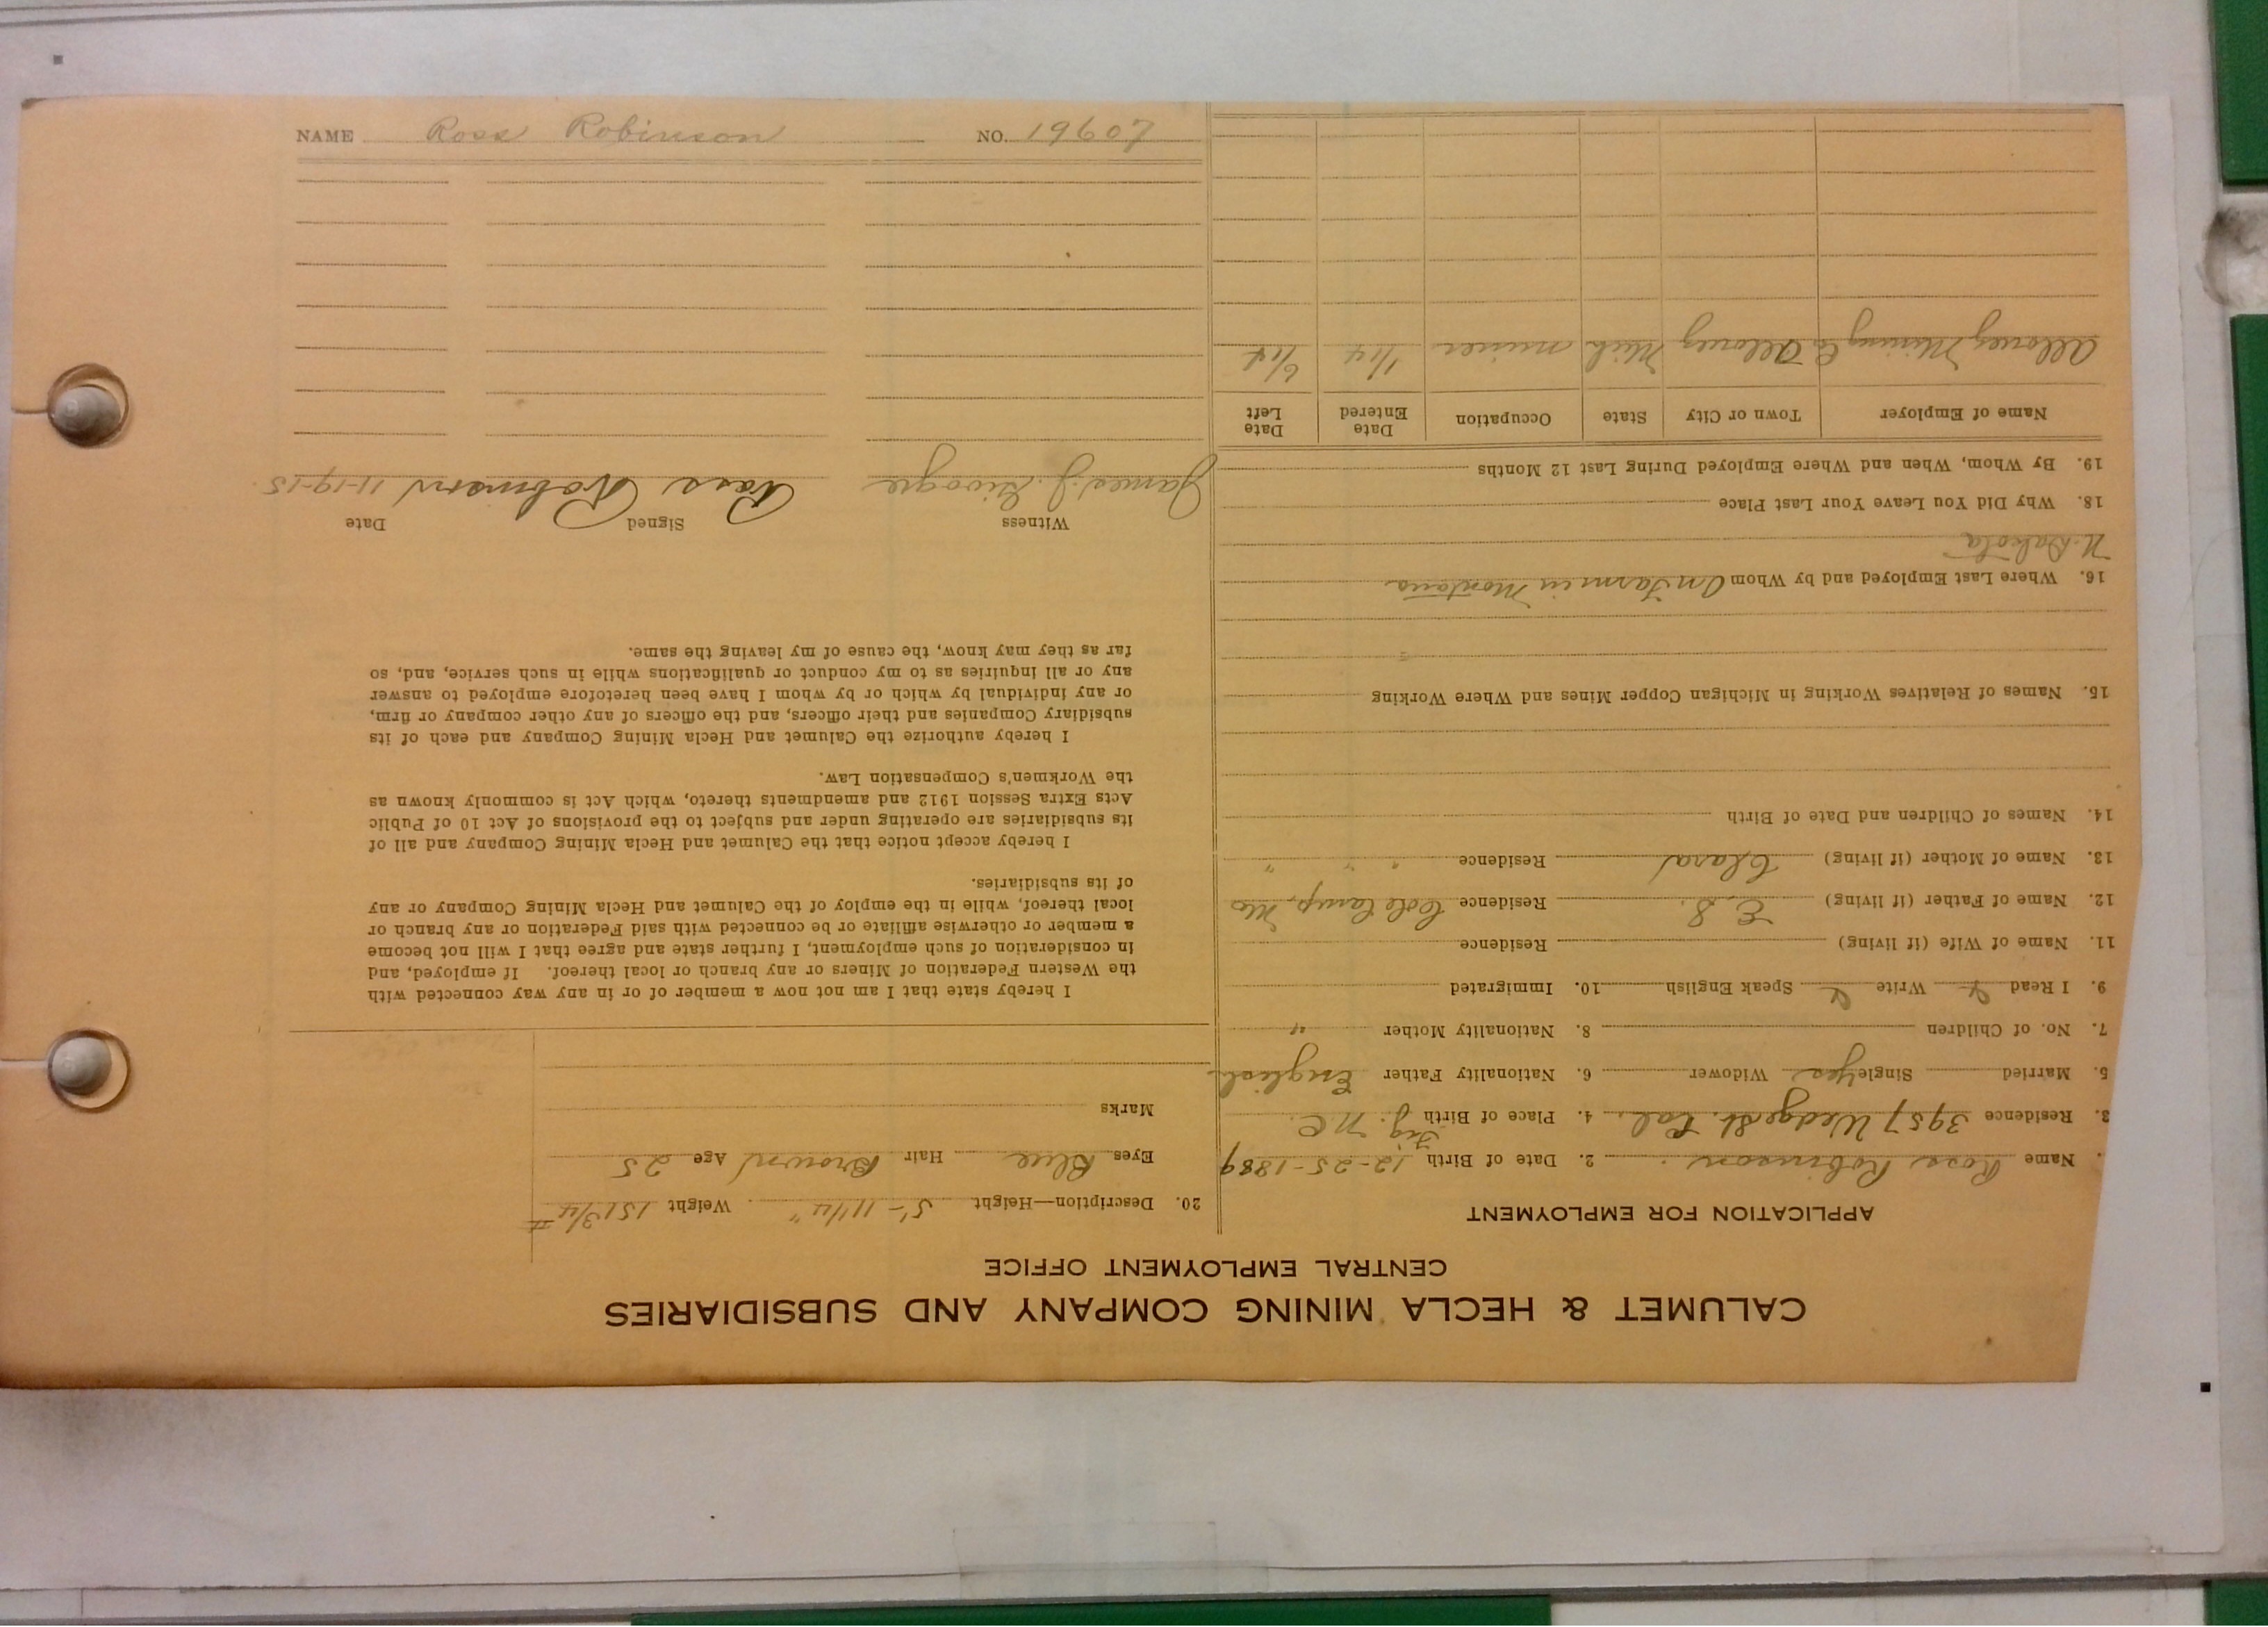 CALUMET & HECLA MINING COMPANY AND SUBSIDIARIES
CENTRAL EMPLOYMENT OFFICE
APPLICATION FOR EMPLOYMENT
. Name Ross Robinson 2. Date of Birth 12-25-1889
3. Residence 3957 Wedge St. Cal. 4. Place of Birth N.C.
5. Married Single Yes Widower 6. Nationality Father English
7. No. of Children 8. Nationality Mother "
9. I Read Y Write Y Speak English 10. Immigrated
11. Name of Wife (if living) Residence
12. Name of Father (if living) E. S. Residence Cole Camp, Mo
13. Name of Mother (if living) Clara Residence " " "
14. Names of Children and Date of Birth
15. Names of Relatives Working in Michigan Copper Mines and Where Working
16. Where Last Employed and by Whom On Farm in Montana
N. Dakota
18. Why Did You Leave Your Last Place
19. By Whom, When and Where Employed During Last 12 Months
Name of Employer Town or City State Occupation Date Entered Date Left
Allouez Mining Co Allouez Mich miner 1/14 6/14
20. Description—Height 5'-11 1/4" Weight 151 3/4 #
Eyes Blue Hair Brown Age 25
Marks
I hereby state that I am not now a member of or in any way connected with
the Western Federation of Miners or any branch or local thereof. If employed, and
in consideration of such employment, I further state and agree that I will not become
a member or otherwise affiliate or be connected with said Federation or any branch or
local thereof, while in the employ of the Calumet and Hecla Mining Company or any
of its subsidiaries.
I hereby accept notice that the Calumet and Hecla Mining Company and all of
its subsidiaries are operating under and subject to the provisions of Act 10 of Public
Acts Extra Session 1912 and amendments thereto, which Act is commonly known as
the Workmen's Compensation Law.
I hereby authorize the Calumet and Hecla Mining Company and each of its
subsidiary Companies and their officers, and the officers of any other company or firm,
or any individual by which or by whom I have been heretofore employed to answer
any or all inquiries as to my conduct or qualifications while in such service, and, so
far as they may know, the cause of my leaving the same.
Witness Signed Date
James J. Ross Robinson 11-19-15
NAME Ross Robinson NO. 19607